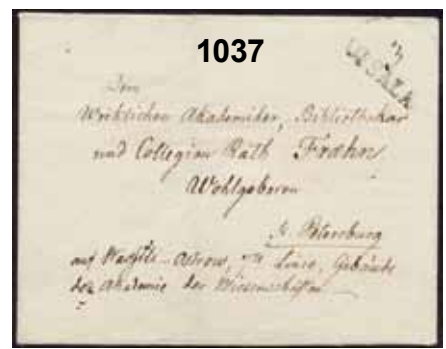 1037
UPSALA
Dem
Wirklichen Akademiker, Bibliothekar
und Collegien Rath Fræhn
Wohlgeboren
St Petersburg
auf Linie, Gebäude
der Akademie der Wissenschaften